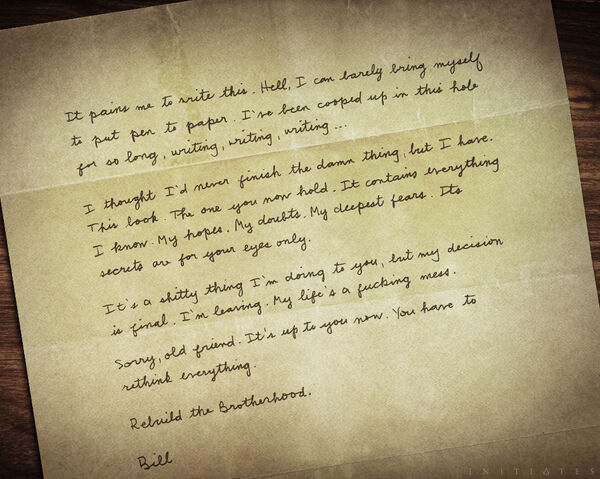 It pains me to write this. Hell, I can barely bring myself
to put pen to paper. I've been cooped up in this hole
for so long, writing, writing, writing...
I thought I'd never finish the damn thing, but I have.
This book. The one you now hold. It contains everything
I know. My hopes. My doubts. My deepest fears. Its
secrets are for your eyes only.
It's a shitty thing I'm doing to you, but my decision
is final. I'm leaving. My life's a fucking mess.
Sorry, old friend. It's up to you now. You have to
rethink everything.
Rebuild the Brotherhood.
Bill
INITIATES